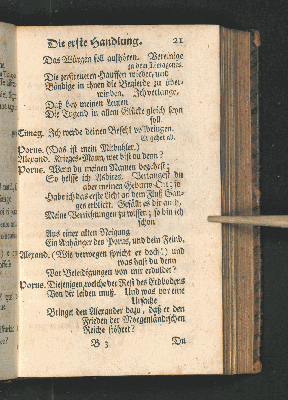 Die erste Handlung. 21
Das Würgen soll aufhören. Vereinige
zu dem
Die zerstreueten Hauffen wieder, und
Bändige in ihnen die Begierde zu über-
winden. Ich verlange,
Daß bey meinen Leuten
Die Tugend in allem Glücke gleich seyn
soll.
Timag. Ich werde deinen Befehl vollbringen.
Er gehet ab.
Porus. (Das ist mein Nebuhler.)
Alexand. Krieges-Mann, wer bist du denn?
Porus. Wann du meinen Namen begehrst;
So heisse ich Asbites. Verlangest du
aber meinen Geburts-Ort; so
Habe ich das erste Licht an dem Fluß Gan-
ges erblickt. Gefällt es dir auch,
Meine Verrichtungen zu wissen; so bin ich
schon
Aus einer alten Neigung
Ein Anhänger des Porus, und dein Feind.
Alexand. (Wie verwegen spricht er doch!) und
was hast du denn
Vor Beleidigungen von mir erduldet?
Porus. Diejenigen, welche der Rest des Erdbodens
Von dir leiden muß. Und was vor eine
Ursache
Bringet den Alexander dazu, daß er den
Frieden der Morgenländischen
Reiche stöhret?
B 3 Du